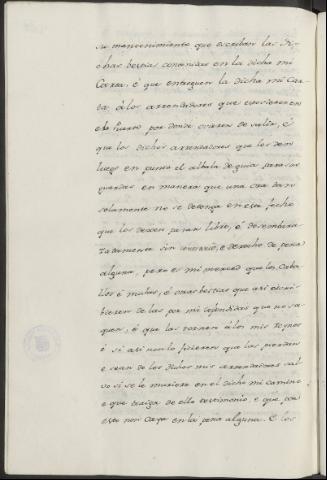 su mantenimiento que escriban las di-
chas bestias contenidas en la dicha mi
Carta, é que entreguen la dicha mi Car-
ta, á los arrendadores que estovieren en
el Puerto por donde ovieren de salir, é
que los dichos arrendadores que los den
luego en punto el albala de guia para sus
guardas en manera que una ora tan
solamente no se detenga en esta fecho
que los dexen pasar libre, é desembara-
zadamente sin contrario, é derecho de pena
alguna, pero es mi merced que los Caba-
llos é mulas, é otras bestias que asi escri-
bieren de las por mi defendidas que no sa-
quen, é que las tornen á los mis Reynos
é si asi non lo ficieren que los pierdan
é sean de los dichos mis arrendadores sal-
vo si se le muriere en el dicho mi camino
é que traiga de ello testimonio é que por
esto non caya en la pena alguna. E los